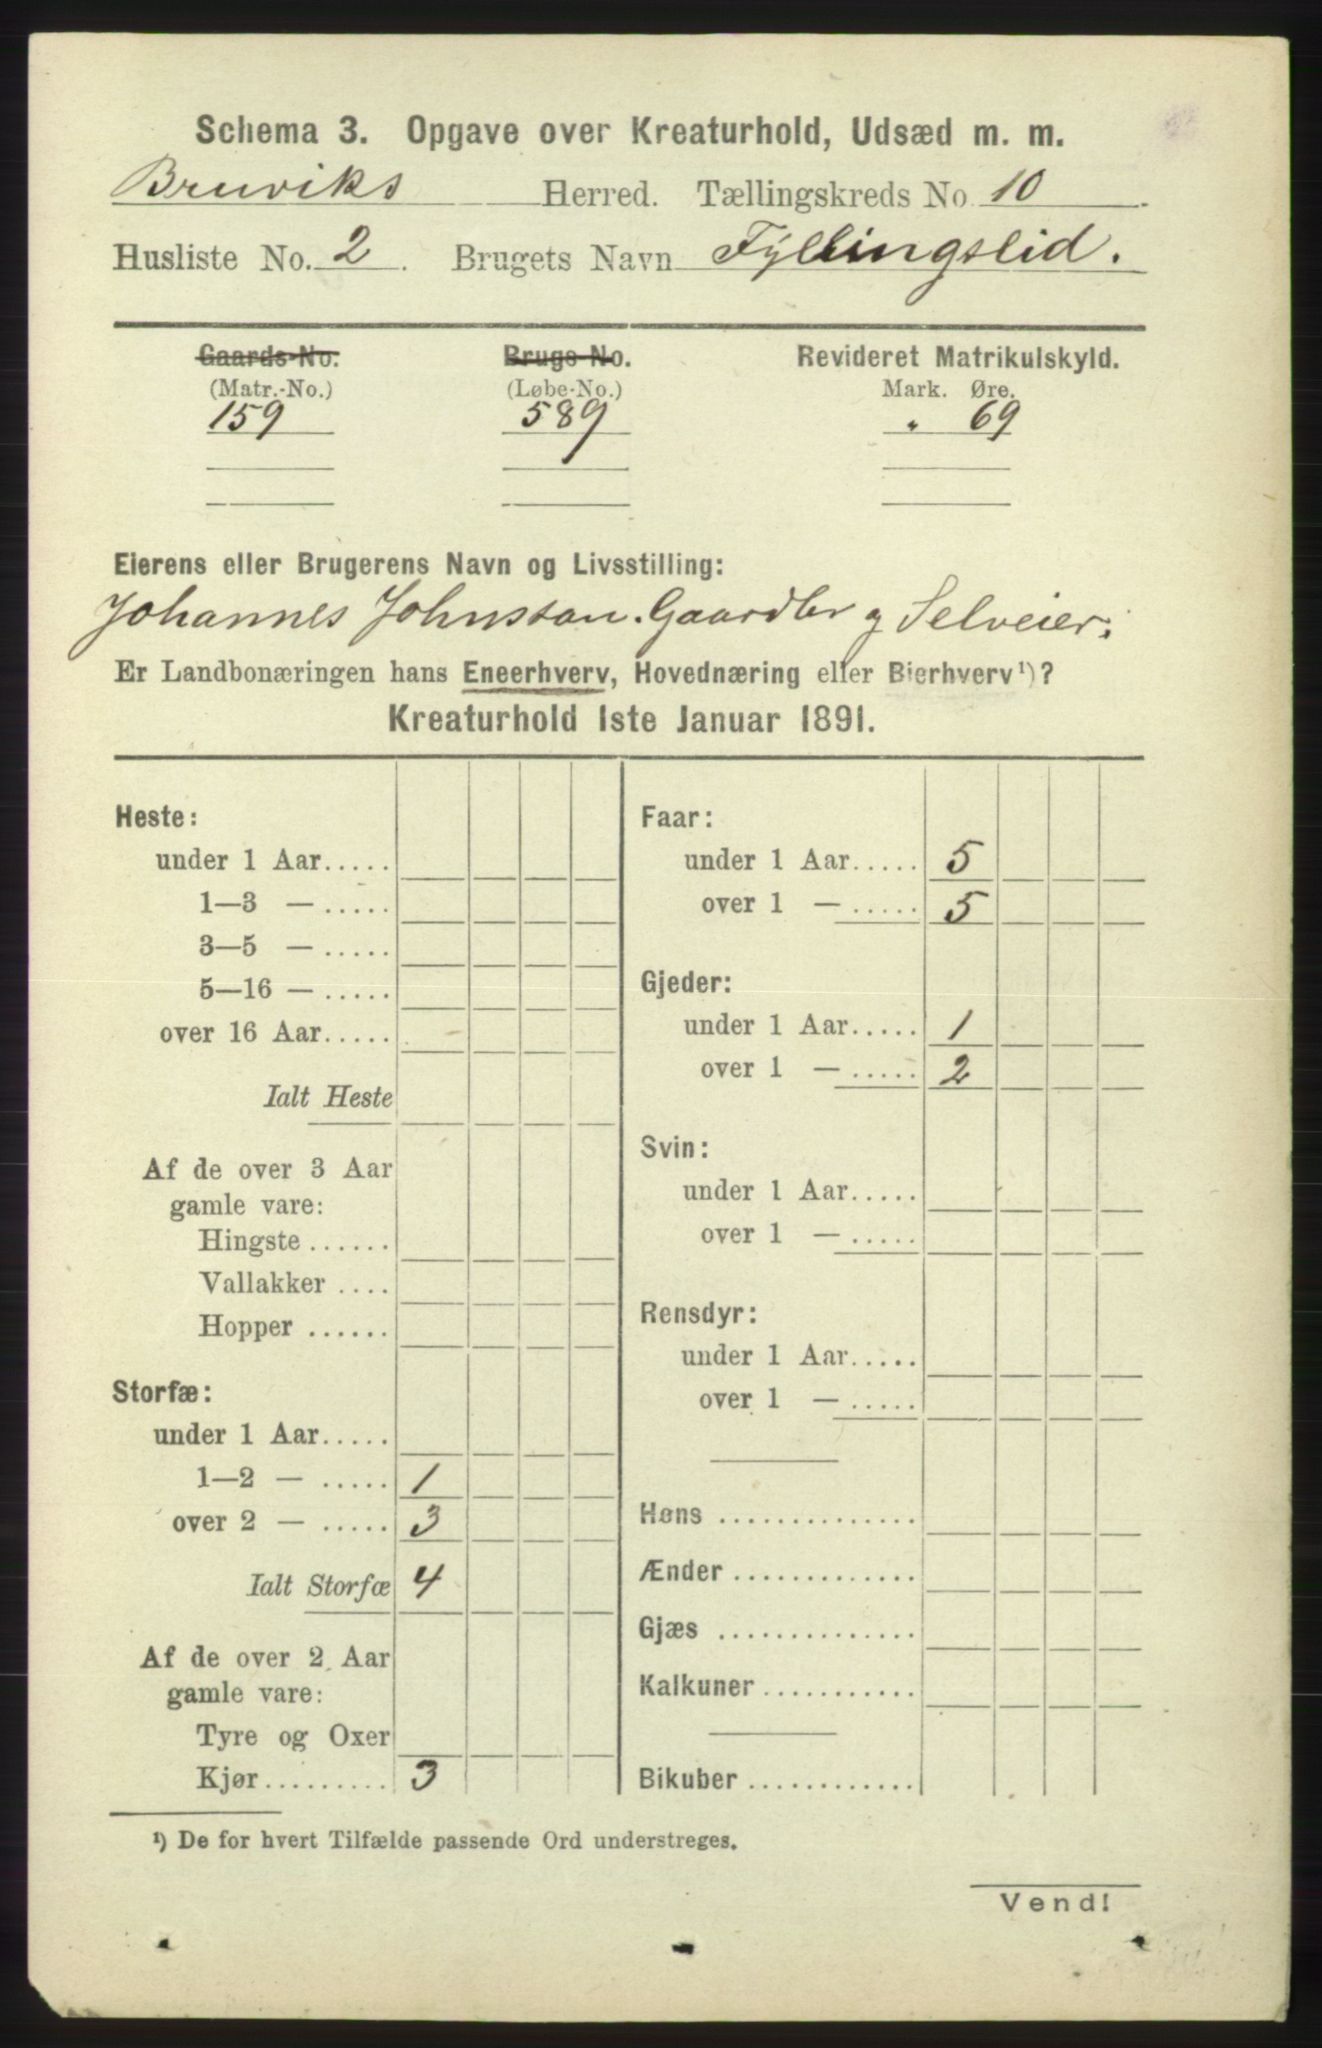 Schema 3. Opgave over Kreaturhold, Udsæd m. m.
Bruviks Herred. Tællingskreds No. 10.
Husliste No. 2. Brugets Navn Fyllingslid.
Gaards-No. Brugs-No. Revideret Matrikulskyld.
(Matr.-No.) (Løbe-No.) Mark. Øre.
159 589 " 69
Eierens eller Brugerens Navn og Livsstilling:
Johannes Johnson. Gaardbr og Selveier.
Er Landbonæringen hans Eneerhverv, Hovednæring eller Bierhverv¹)?
Kreaturhold 1ste Januar 1891.
Heste:
under 1 Aar.....
1—3 — .....
3—5 — .....
5—16 — .....
over 16 Aar.....
Ialt Heste
Af de over 3 Aar
gamle vare:
Hingste ......
Vallakker ....
Hopper ......
Storfæ:
under 1 Aar.....
1—2 — ..... 1
over 2 — ..... 3
Ialt Storfæ 4
Af de over 2 Aar
gamle vare:
Tyre og Oxer
Kjør......... 3
Faar:
under 1 Aar..... 5
over 1 — ..... 5
Gjeder:
under 1 Aar..... 1
over 1 — ..... 2
Svin:
under 1 Aar.....
over 1 — .....
Rensdyr:
under 1 Aar.....
over 1 — .....
Høns ..............
Ænder .............
Gjæs ..............
Kalkuner ...........
Bikuber ............
¹) De for hvert Tilfælde passende Ord understreges.
Vend!